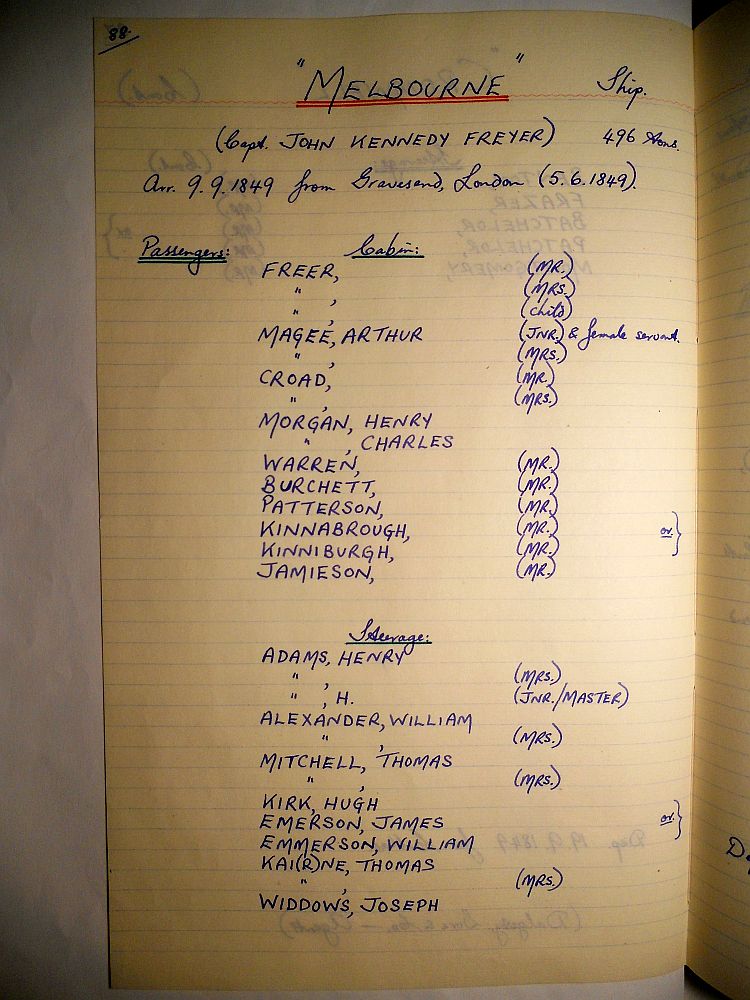 88.
"MELBOURNE" Ship.
(Capt. JOHN KENNEDY FREYER) 496 tons.
Arr. 9.9.1849 from Gravesend, London (5.6.1849).
Passengers: Cabin:
FREER, (MR.)
" , (MRS.)
" , (child)
MAGEE, ARTHUR (JNR.) & female servant.
" , (MRS.)
CROAD, (MR.)
" , (MRS.)
MORGAN, HENRY
" , CHARLES
WARREN, (MR.)
BURCHETT, (MR.)
PATTERSON, (MR.)
KINNABROUGH, (MR.) or }
KINNIBURGH, (MR.)
JAMIESON, (MR.)
Steerage:
ADAMS, HENRY
" , (MRS.)
" , H. (JNR./MASTER)
ALEXANDER, WILLIAM
" , (MRS.)
MITCHELL, THOMAS
" , (MRS.)
KIRK, HUGH
EMERSON, JAMES or }
EMMERSON, WILLIAM
KAI(R)NE, THOMAS
" , (MRS.)
WIDDOWS, JOSEPH